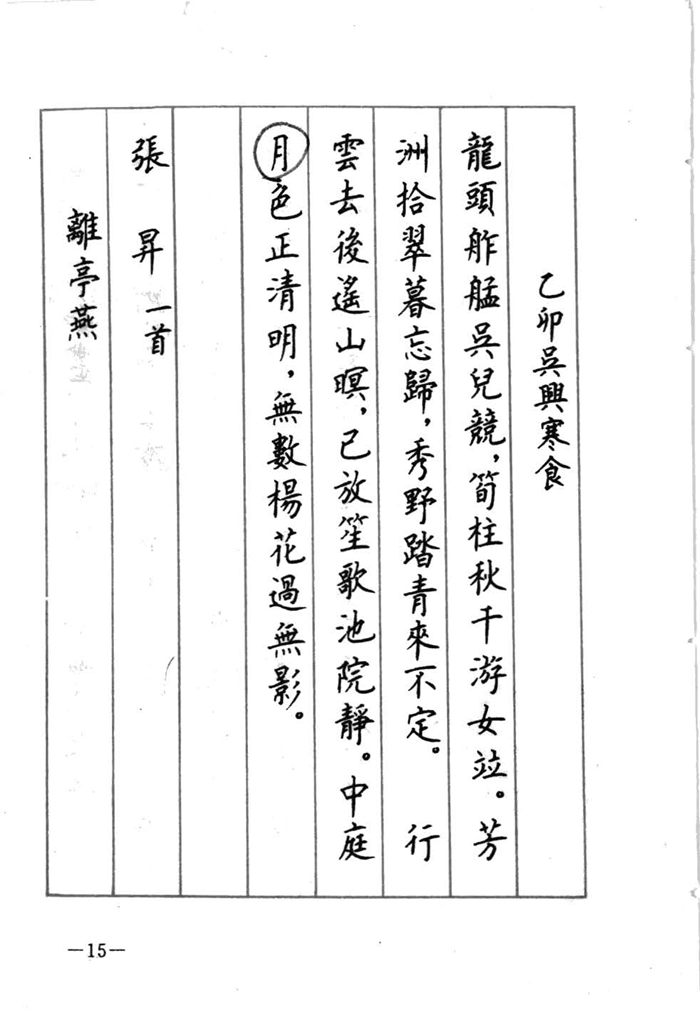 乙卯吳興寒食
龍頭舴艋吳兒競，筍柱秋千游女竝。芳
洲拾翠暮忘歸，秀野踏青來不定。　行
雲去後遙山暝，已放笙歌池院靜。中庭
月色正清明，無數楊花過無影。
張　昇　一首
離亭燕
—15—